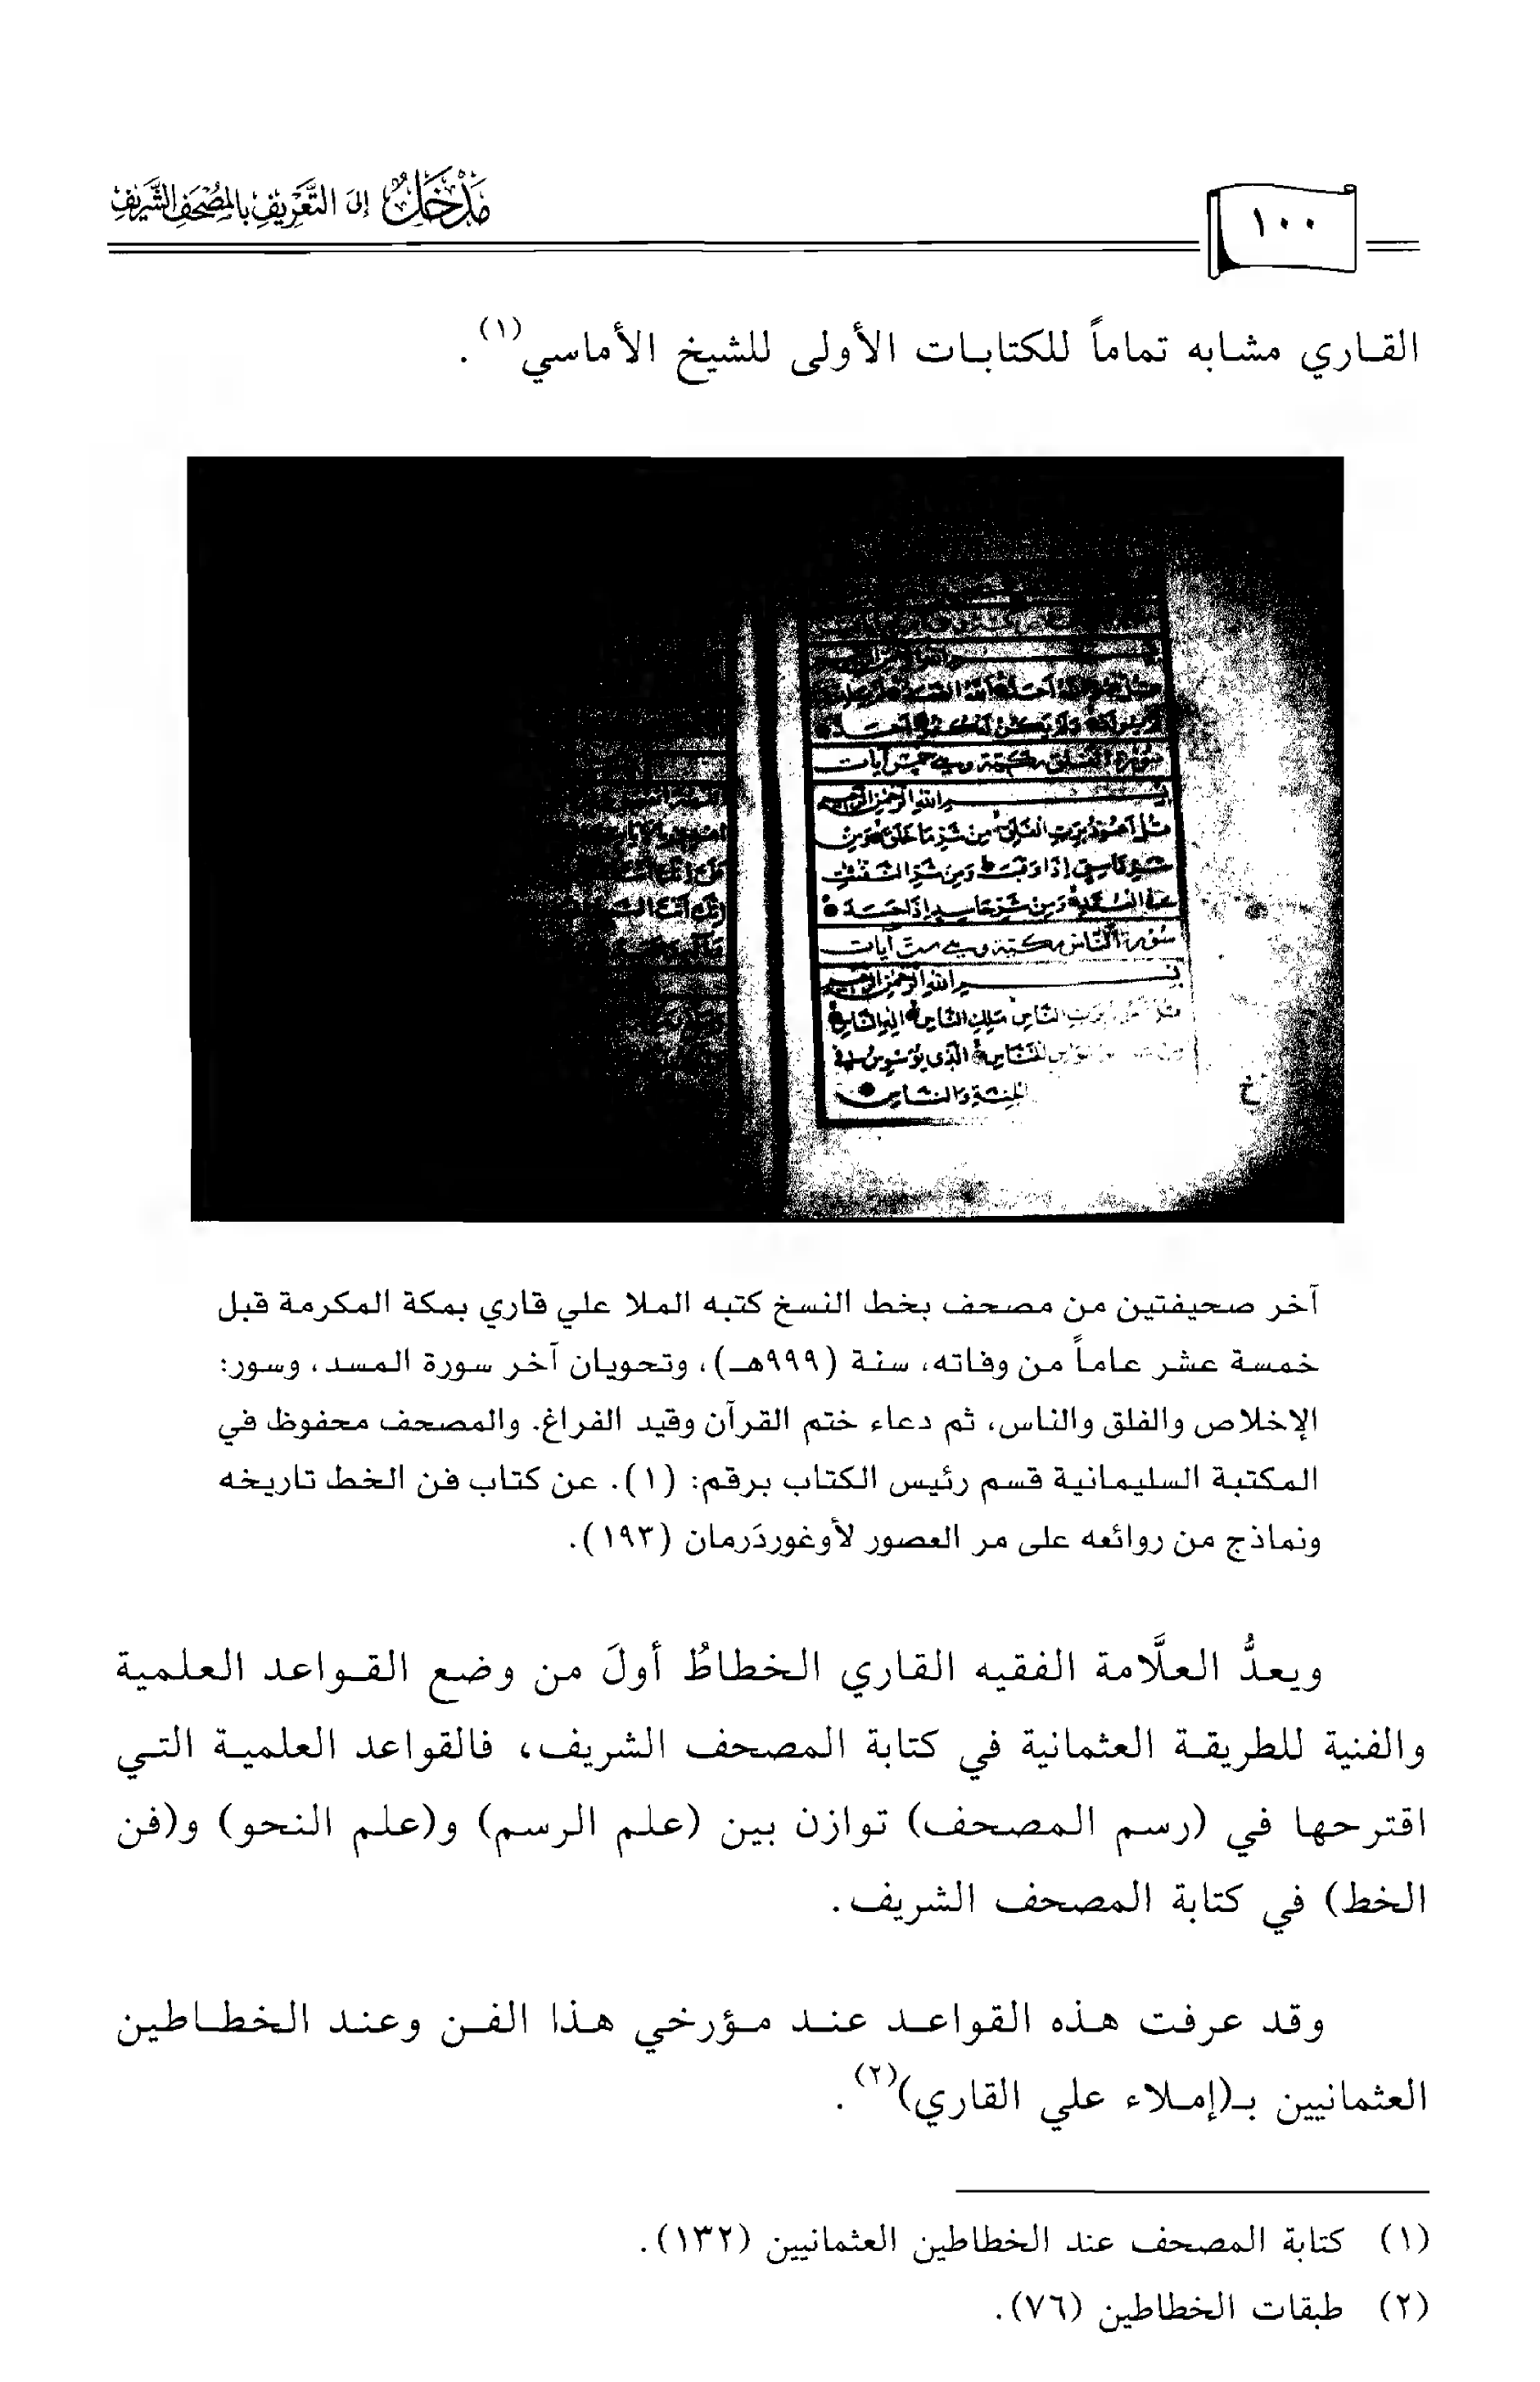 ١٠٠
مَدْخَلٌ إِلَى التَّعْرِيفِ بِالمُصْحَفِ الشَّرِيفِ
القاري مشابه تماماً للكتابات الأولى للشيخ الأماسي(١).
سورة الفلق مكية وهي خمس آيات
بسم الله الرحمن الرحيم
قل أعوذ برب الفلق من شر ما خلق ومن
شر غاسق إذا وقب ومن شر النفثت
في العقد ومن شر حاسد إذا حسد
سورة الناس مكية وهي ست آيات
بسم الله الرحمن الرحيم
قل أعوذ برب الناس ملك الناس إله الناس
الناس الذي يوسوس في
الجنة والناس
آخر صحيفتين من مصحف بخط النسخ كتبه الملا علي قاري بمكة المكرمة قبل
خمسة عشر عاماً من وفاته، سنة (٩٩٩هـ)، وتحويان آخر سورة المسد، وسور:
الإخلاص والفلق والناس، ثم دعاء ختم القرآن وقيد الفراغ. والمصحف محفوظ في
المكتبة السليمانية قسم رئيس الكتاب برقم: (١). عن كتاب فن الخط تاريخه
ونماذج من روائعه على مر العصور لأوغوردَرمان (١٩٣).
ويعدُّ العلَّامة الفقيه القاري الخطاطُ أولَ من وضع القواعد العلمية
والفنية للطريقة العثمانية في كتابة المصحف الشريف، فالقواعد العلمية التي
اقترحها في (رسم المصحف) توازن بين (علم الرسم) و(علم النحو) و(فن
الخط) في كتابة المصحف الشريف.
وقد عرفت هذه القواعد عند مؤرخي هذا الفن وعند الخطاطين
العثمانيين بـ(إملاء علي القاري)(٢).
(١) كتابة المصحف عند الخطاطين العثمانيين (١٣٢).
(٢) طبقات الخطاطين (٧٦).